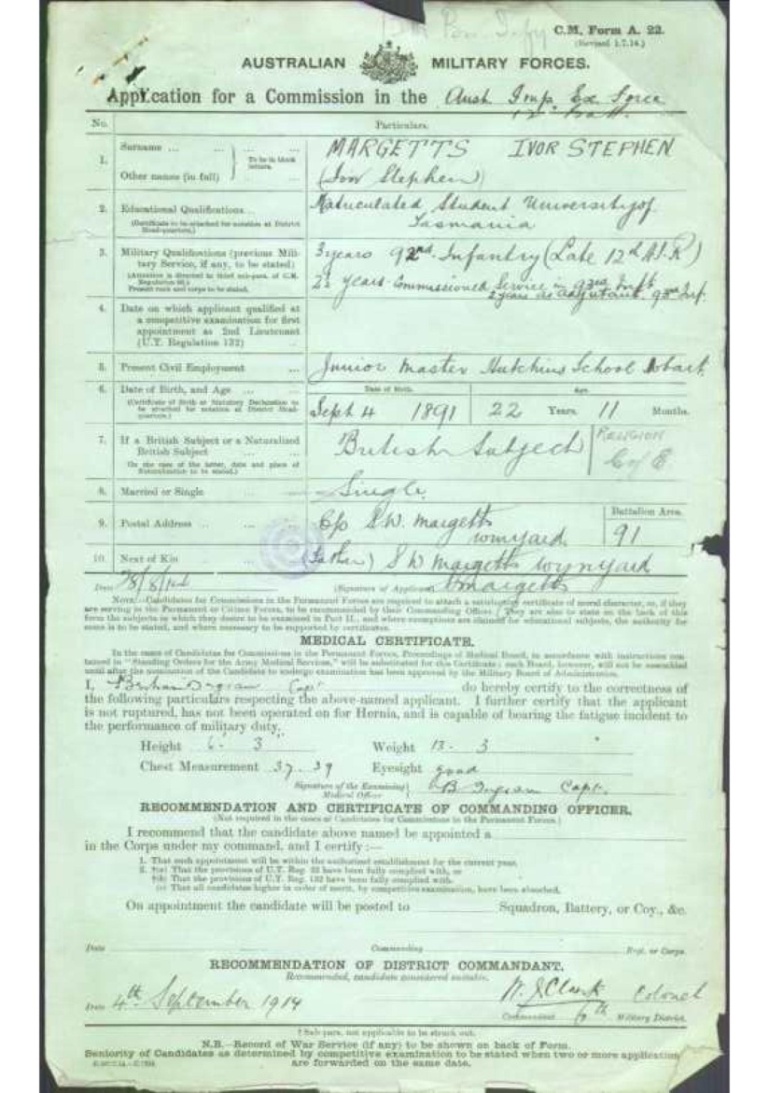 C.M. Form A. 22.
(Revised 1.7.14.)
AUSTRALIAN MILITARY FORCES.
Application for a Commission in the Aust. Imp. Ex Force
12th Batt.
No. Particulars.
1. Surname ... To be in block letters. MARGETTS IVOR STEPHEN
Other names (in full) (Ivor Stephen)
2. Educational Qualifications ... Matriculated Student University of
(Certificate to be attached for notation at District Head-quarters.) Tasmania
3. Military Qualifications (previous Mili- 3 years 92nd Infantry (Late 12th A.I.R)
tary Service, if any, to be stated)
(Attention is directed to third sub-para. of C.M. Regulation 
Present rank and corps to be stated. 2½ years Commissioned Service in 93rd Inft
2 years as adjutant. 93rd Inf.
4. Date on which applicant qualified at
a competitive examination for first
appointment as 2nd Lieutenant
(U.T. Regulation 132)
5. Present Civil Employment Junior Master Hutchins School Hobart.
6. Date of Birth, and Age Date of Birth. Age.
(Certificate of Birth or Statutory Declaration to be attached for notation at District Head-quarters.) Sept 4 1891 22 Years. 11 Months.
7. If a British Subject or a Naturalized British Subject Raligion
British Subject C of E
(In the case of the latter, date and place of Naturalization to be stated.)
8. Married or Single Single
9. Postal Address C/o S.W. Margetts Battalion Area.
Wynyard 91
10. Next of Kin (Father) S W Margetts Wynyard
Date 28/8/14 (Signature of Applicant) Margetts
NOTE.—Candidates for Commissions in the Permanent Forces are required to attach a satisfactory certificate of moral character, or, if they
are serving in the Permanent or Citizen Forces, to be recommended by their Commanding Officer. They are also to state on the back of this
form the subjects in which they desire to be examined in Part II., and where exemptions are claimed for educational subjects, the authority for
same is to be stated, and where necessary to be supported by certificates.
MEDICAL CERTIFICATE.
In the cases of Candidates for Commissions in the Permanent Forces, Proceedings of Medical Board, in accordance with instructions con-
tained in "Standing Orders for the Army Medical Services," will be substituted for this Certificate; such Board, however, will not be assembled
until after the nomination of the Candidate to undergo examination has been approved by the Military Board of Administration.
I, Bertram Ingram Capt do hereby certify to the correctness of
the following particulars respecting the above-named applicant. I further certify that the applicant
is not ruptured, has not been operated on for Hernia, and is capable of bearing the fatigue incident to
the performance of military duty.
Height 6 - 3 Weight 13 - 3
Chest Measurement 37 - 39 Eyesight good
Signature of the Examining Medical Officer B Ingram Capt.
RECOMMENDATION AND CERTIFICATE OF COMMANDING OFFICER.
(Not required in the cases of Candidates for Commissions in the Permanent Forces.)
I recommend that the candidate above named be appointed a
in the Corps under my command, and I certify :—
1. That such appointment will be within the authorized establishment for the current year.
2. †(a) That the provisions of U.T. Reg. 32 have been fully complied with, or
†(b) That the provisions of U.T. Reg. 132 have been fully complied with.
(c) That all candidates higher in order of merit, by competitive examination, have been absorbed.
On appointment the candidate will be posted to Squadron, Battery, or Coy., &c.
Date Commanding Regt. or Corps.
RECOMMENDATION OF DISTRICT COMMANDANT.
Recommended, candidate considered suitable.
W. J. Clark Colonel
Date 4th September 1914 Commandant 6th Military District.
† Sub-para. not applicable to be struck out.
N.B.—Record of War Service (if any) to be shown on back of Form.
Seniority of Candidates as determined by competitive examination to be stated when two or more application
are forwarded on the same date.